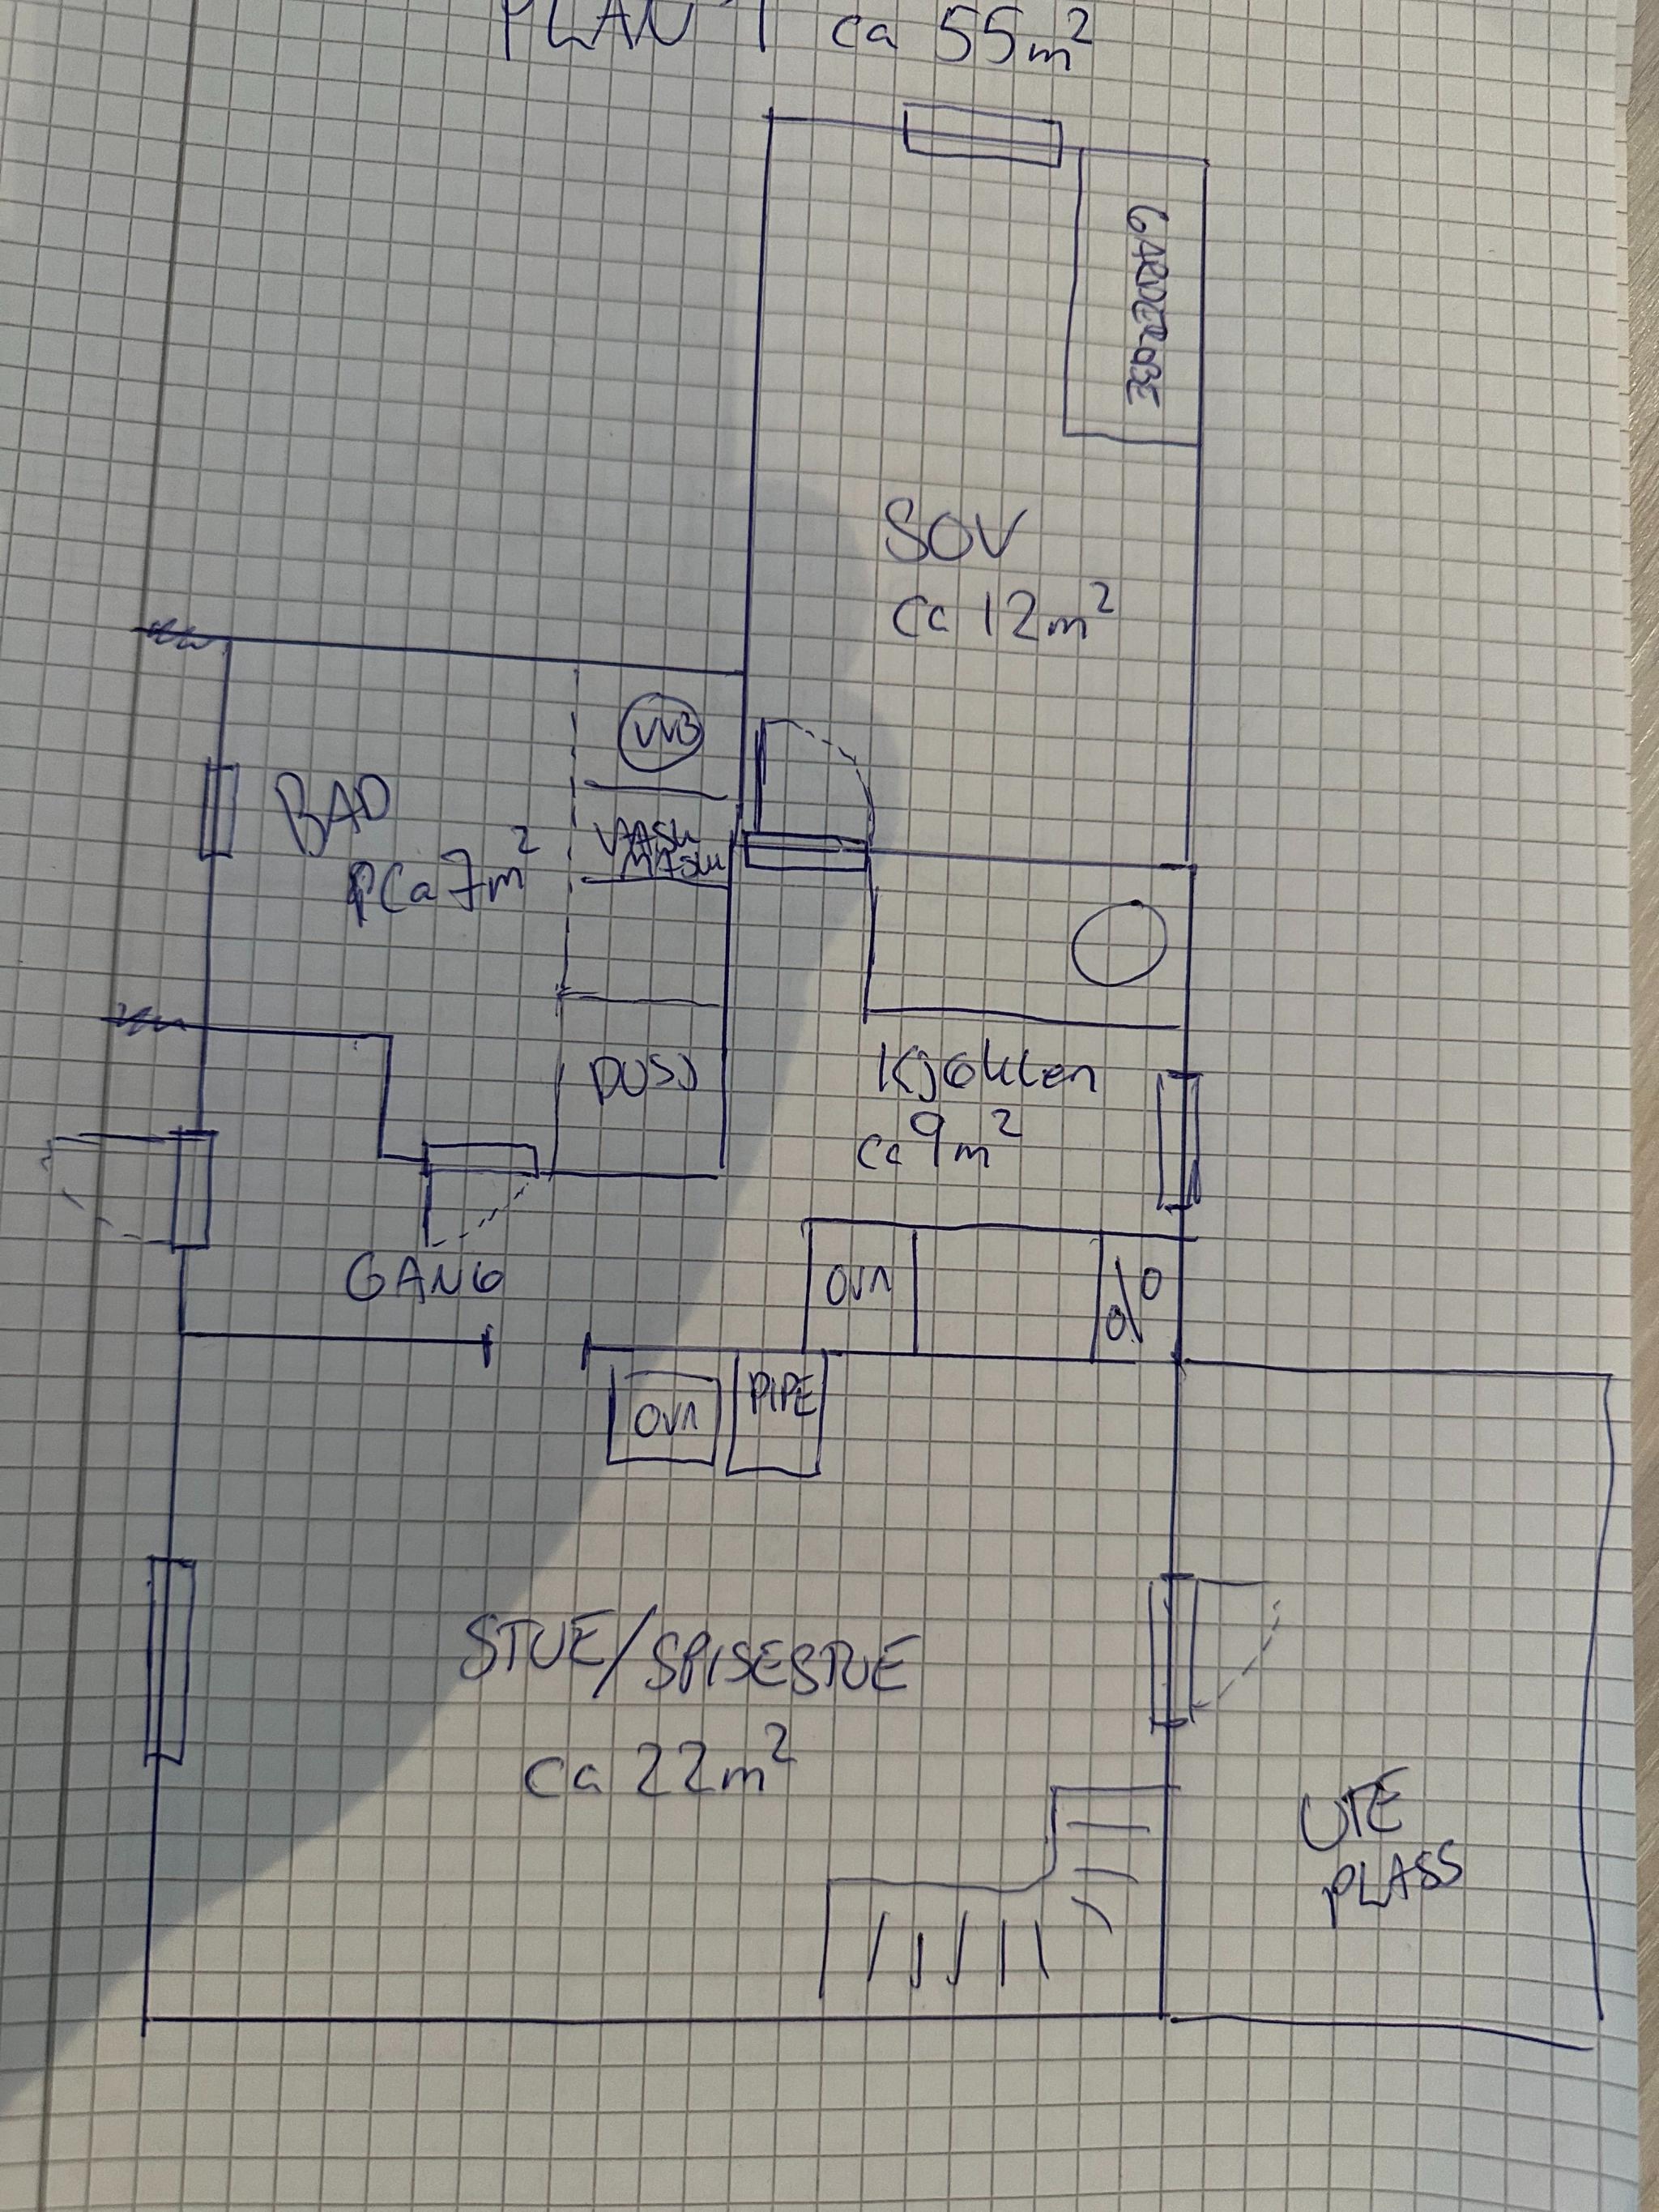 PLAN 1 ca 55m²
GARDEROBE
SOV
ca 12m²
VVB
BAD
ca 7m²
VASK
MASK
DUSJ
Kjøkken
ca 9m²
GANG
OVN
OVN
PIPE
STUE/SPISESTUE
ca 22m²
UTE
PLASS